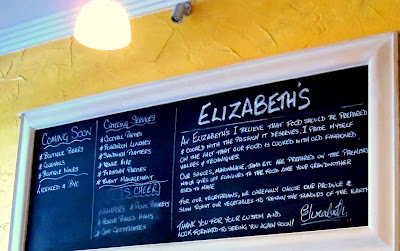 COMING SOON
* BOUTIQUE BEERS
* COCKTAILS
* BOUTIQUE WINES
LICENCED & BYO
CATERING SERVICES
* COCKTAIL PARTIES
* BOARDROOM LUNCHES
* SANDWICH PLATTERS
* VENUE HIRE
* BIRTHDAY PARTIES
* EVENT MANAGEMENT
CHEER
HAMPERS & PICNIC BASKETS
* HOUSE MADE HAMS
* GIFT CERTIFICATES
ELIZABETH'S
AT ELIZABETH'S I BELIEVE THAT FOOD SHOULD BE PREPARED
& COOKED WITH THE PASSION IT DESERVES. I PRIDE MYSELF
ON THE FACT THAT OUR FOOD IS COOKED WITH OLD FASHIONED
VALUES & TECHNIQUES.
OUR SAUCES, MARINADES, JAMS ETC ARE PREPARED ON THE PREMISES
WHICH GIVES OFF FLAVOURS TO THE FOOD LIKE YOUR GRANDMOTHER
USED TO MAKE
FOR OUR VEGETARIANS, WE CAREFULLY CHOOSE OUR PRODUCE &
SLOW ROAST OUR VEGETABLES TO RETAIN THE FLAVOURS OF THE EARTH.
THANK YOU FOR YOUR CUSTOM AND
LOOK FORWARD TO SEEING YOU AGAIN SOON!
Elizabeth